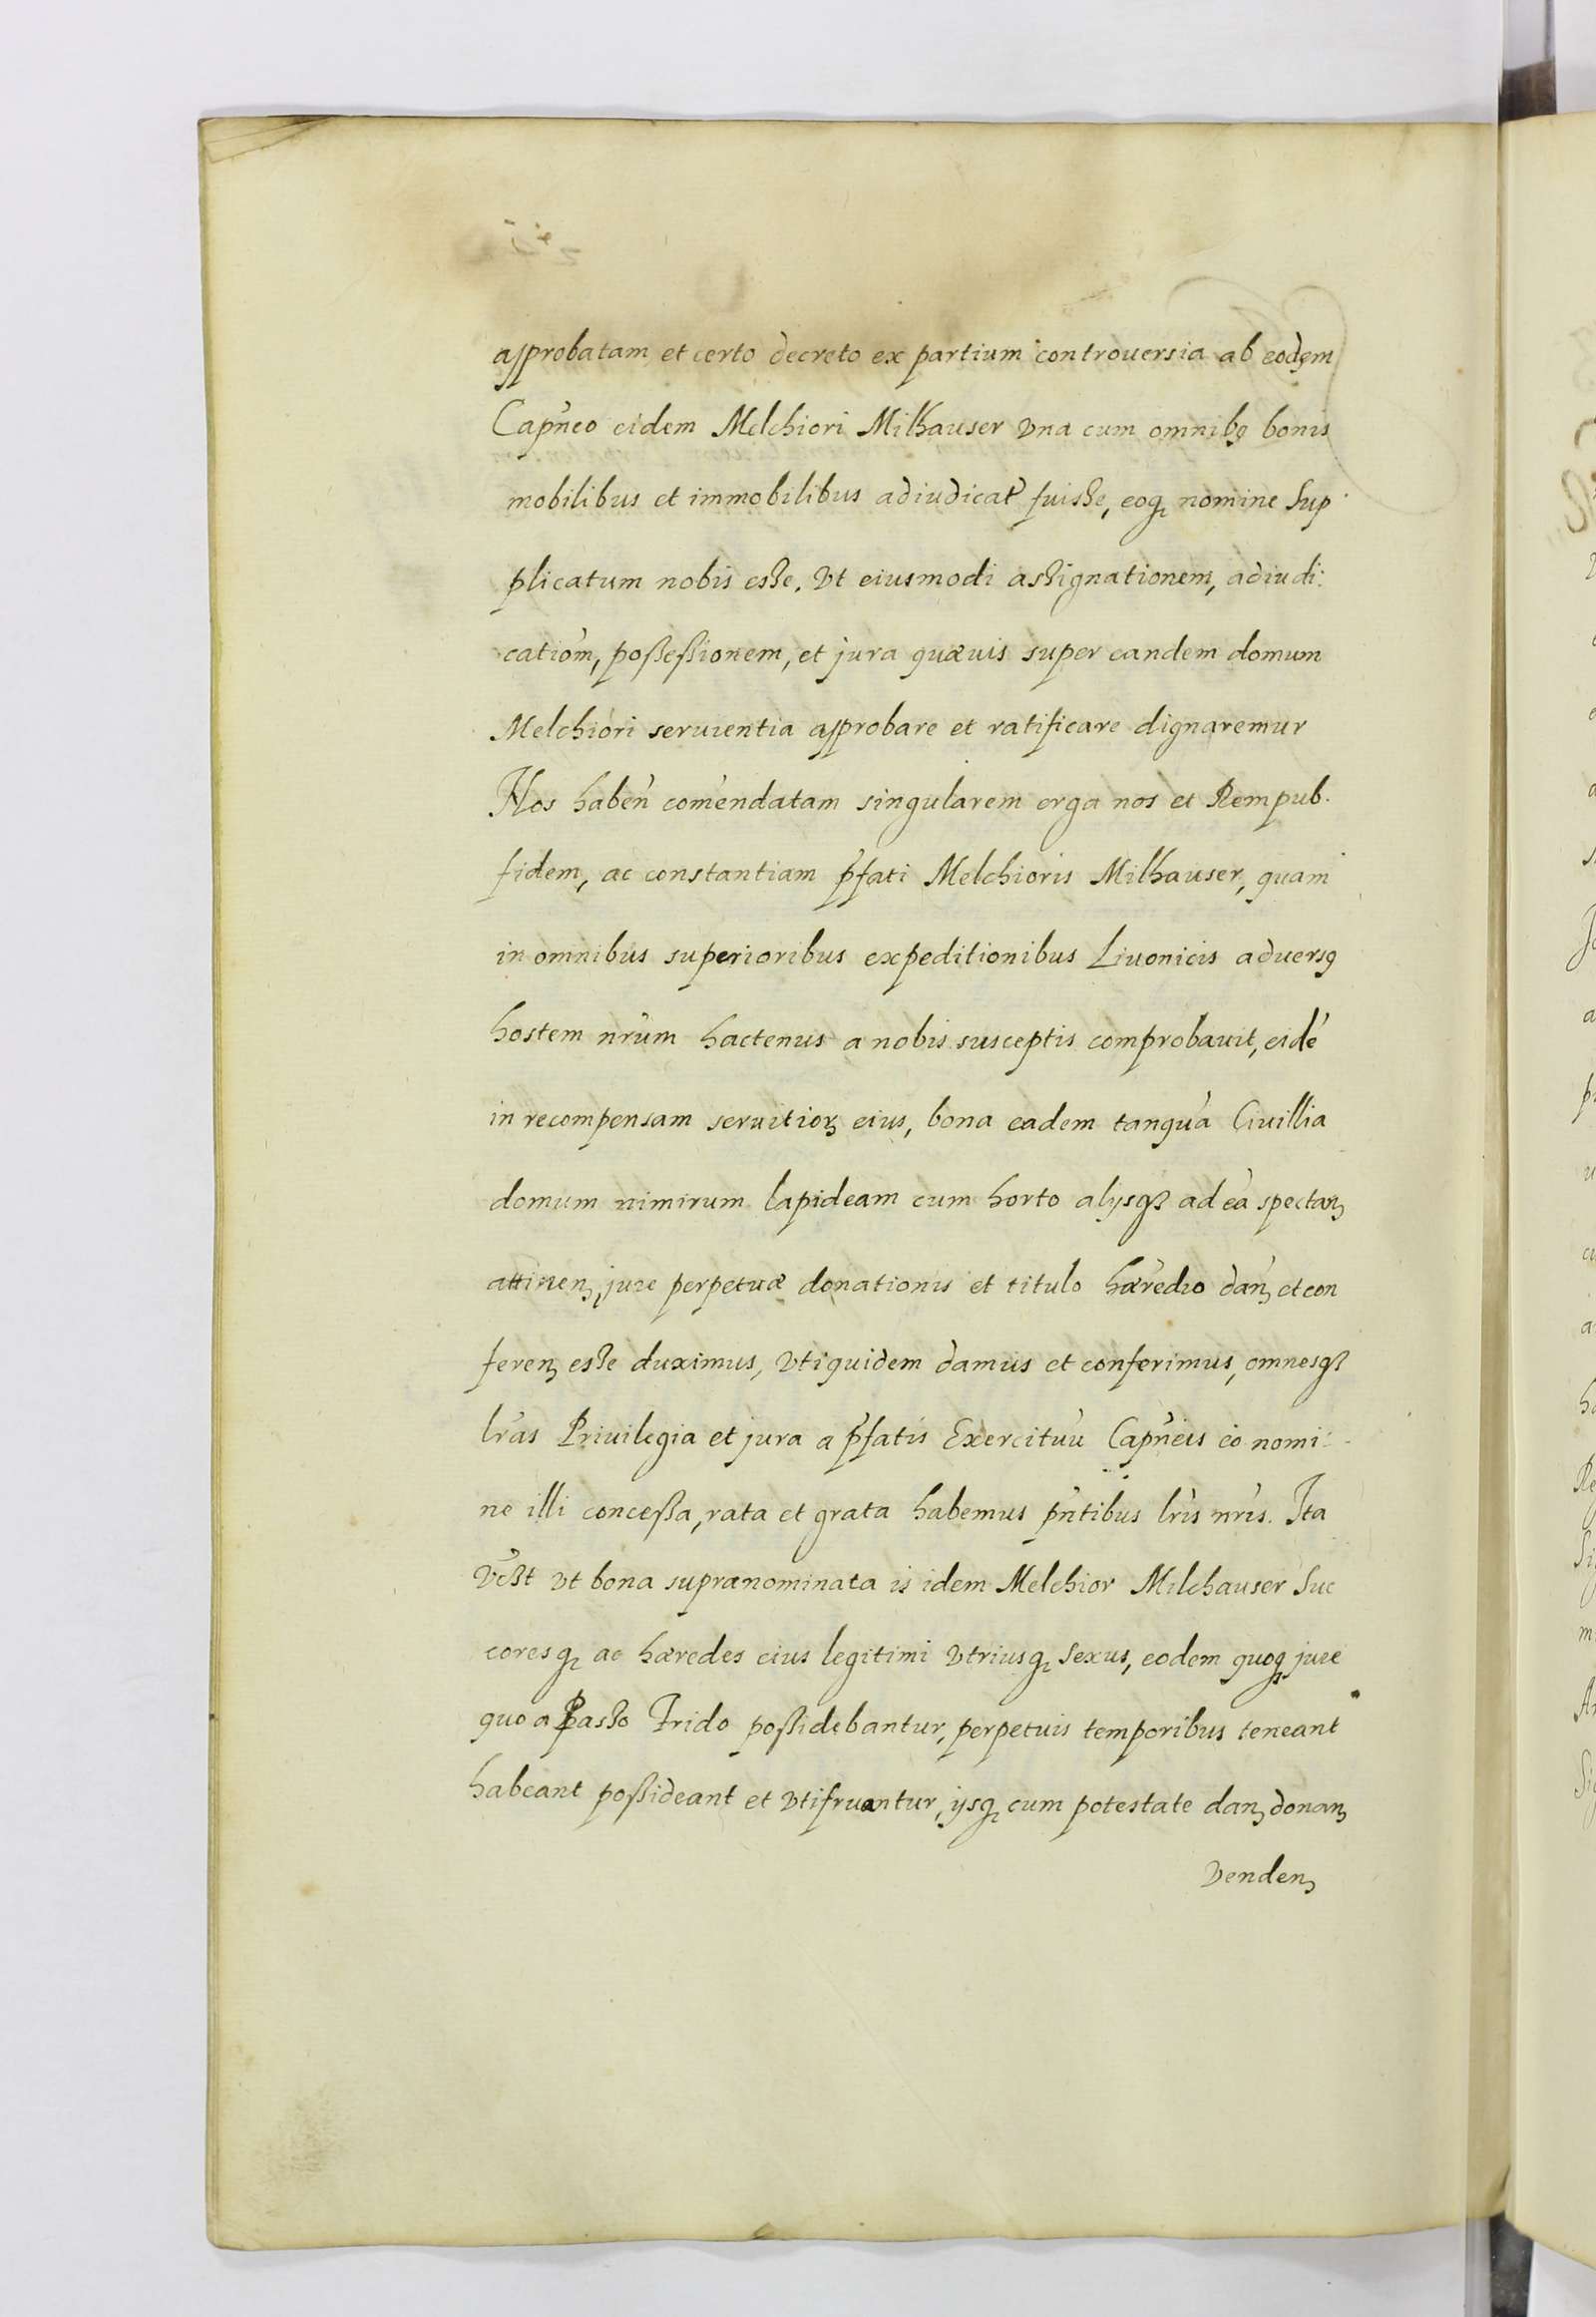 approbatam et certo decreto ex partium controuersia ab eodem
Capn̄eo eidem Melchiori Milhauser vna cum omnibꝯ bonis
mobilibus et immobilibus adiudicat̄ fuisse, eoqꝫ nomine sup
plicatum nobis esse. Vt eiusmodi assignationem, adiudi:
catiom̄, poßeßionem, et jura quæuis super eandem domum
Melchiori seruientia approbare et ratificare dignaremur
Nos haben̄ com̄endatam singularem erga nos et Rempub.
fidem, ac constantiam p̄fati Melchioris Milhauser, quam
in omnibus superioribus expeditionibus Liuonicis aduersꝯ
hostem nr̄um hactenus a nobis susceptis comprobauit, eidē
in recompensam seruitioꝝ eius, bona eadem tanquā Ciuillia
domum nimirum lapideam cum horto alijsqꝫ ad ea spectanꝫ
attinenꝫ, jure perpetuæ donationis et titulo hær̄edio danꝫ et con
ferenꝫ esse duximus, vtiquidem damus et conferimus, omnesqꝫ
lr̄as Priuilegia et jura a p̄fatis Exercituū Capn̄eis eo nomi:
ne illi conceßa, rata et grata habemus pn̄tibus lr̄is nr̄is. Ita
vc̄ꝫt vt bona supranominata is idem Melchior Milchauser Suc
coresqꝫ ac hæredes eius legitimi vtriusqꝫ sexus, eodem quoqꝫ jure
quo a Passo Frido poßidebantur, perpetuis temporibus teneant
habeant poßideant et vtifruantur, ijsqꝫ cum potestate danꝫ donanꝫ
vendenꝫ